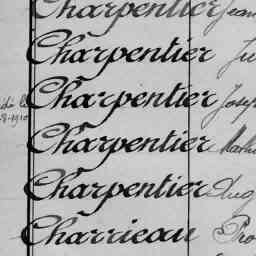 Charpentier Jean
Charpentier Ju
Charpentier Josep
Charpentier
Charpentier Aug
Charrieau Pro